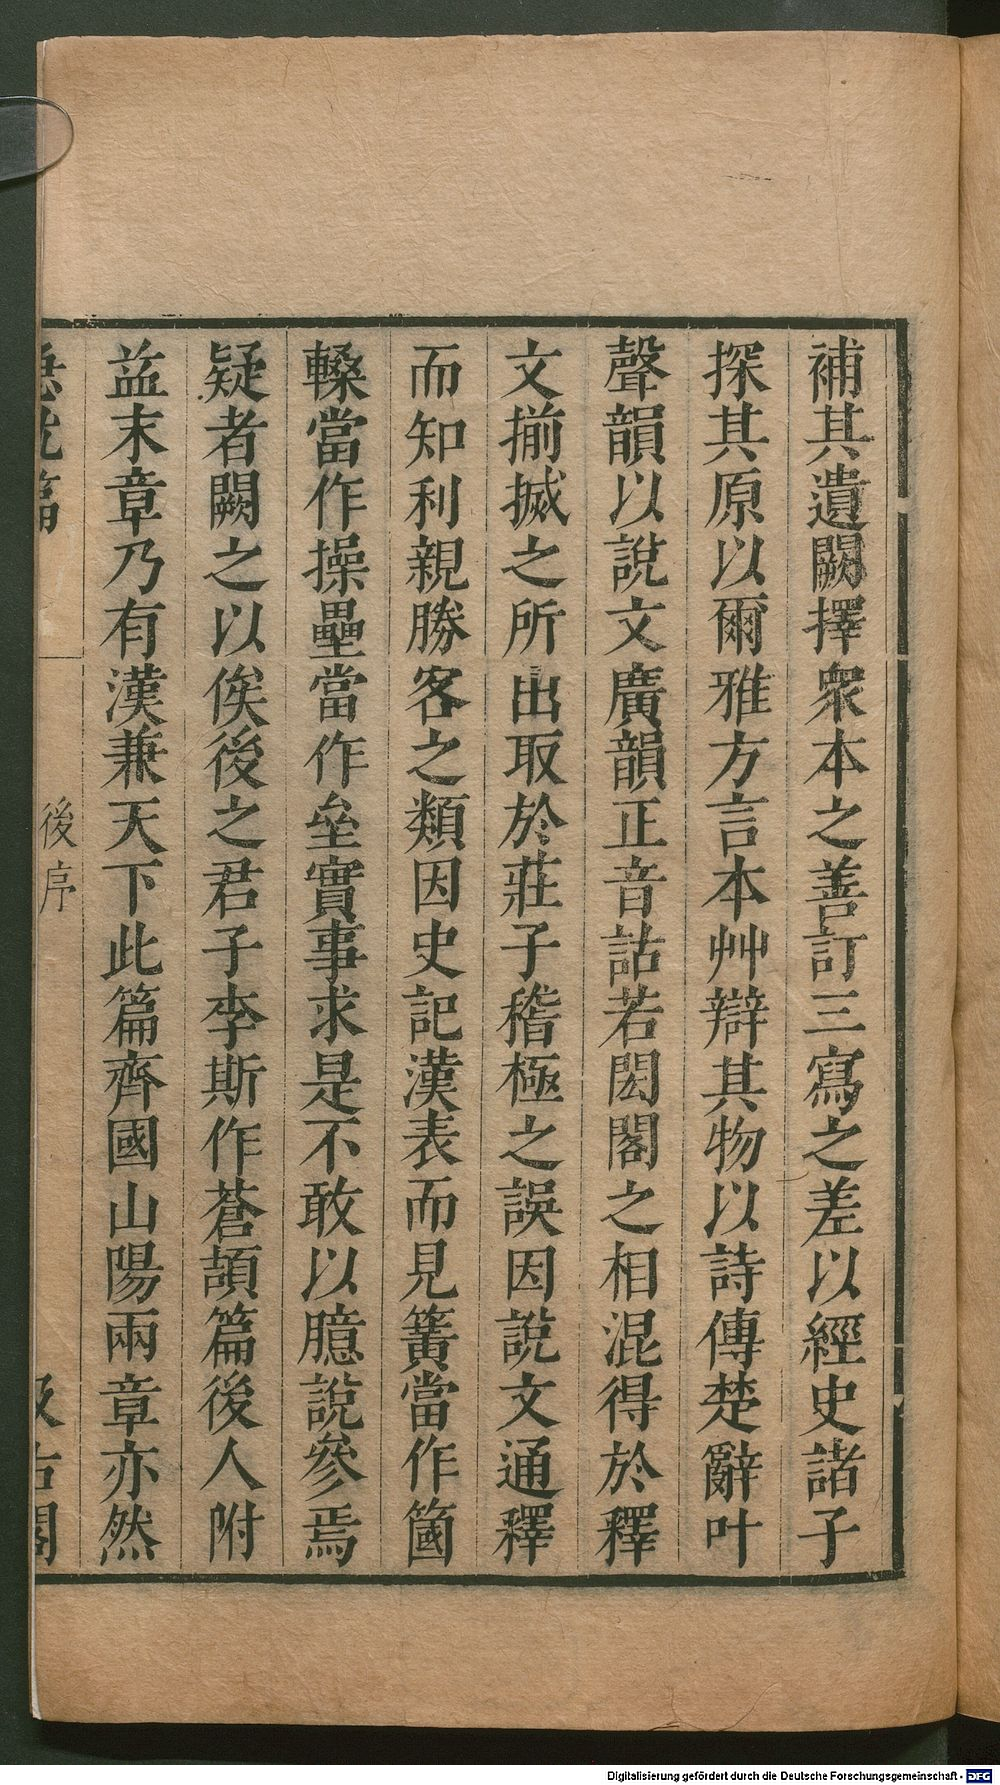 補其遺闕擇衆本之善訂三寫之差以經史諸子
探其原以爾雅方言本艸辯其物以詩傳楚辭叶
聲韻以說文廣韻正音詁若閎閣之相混得於釋
文揃搣之所出取於莊子稽極之誤因說文通釋
而知利親勝客之類因史記漢表而見簧當作箇
轑當作操壘當作垒實事求是不敢以臆說參焉
疑者闕之以俟後之君子李斯作蒼頡篇後人附
益末章乃有漢兼天下此篇齊國山陽兩章亦然
急就篇
後序
汲古閣
Digitalisierung gefördert durch die Deutsche Forschungsgemeinschaft - DFG